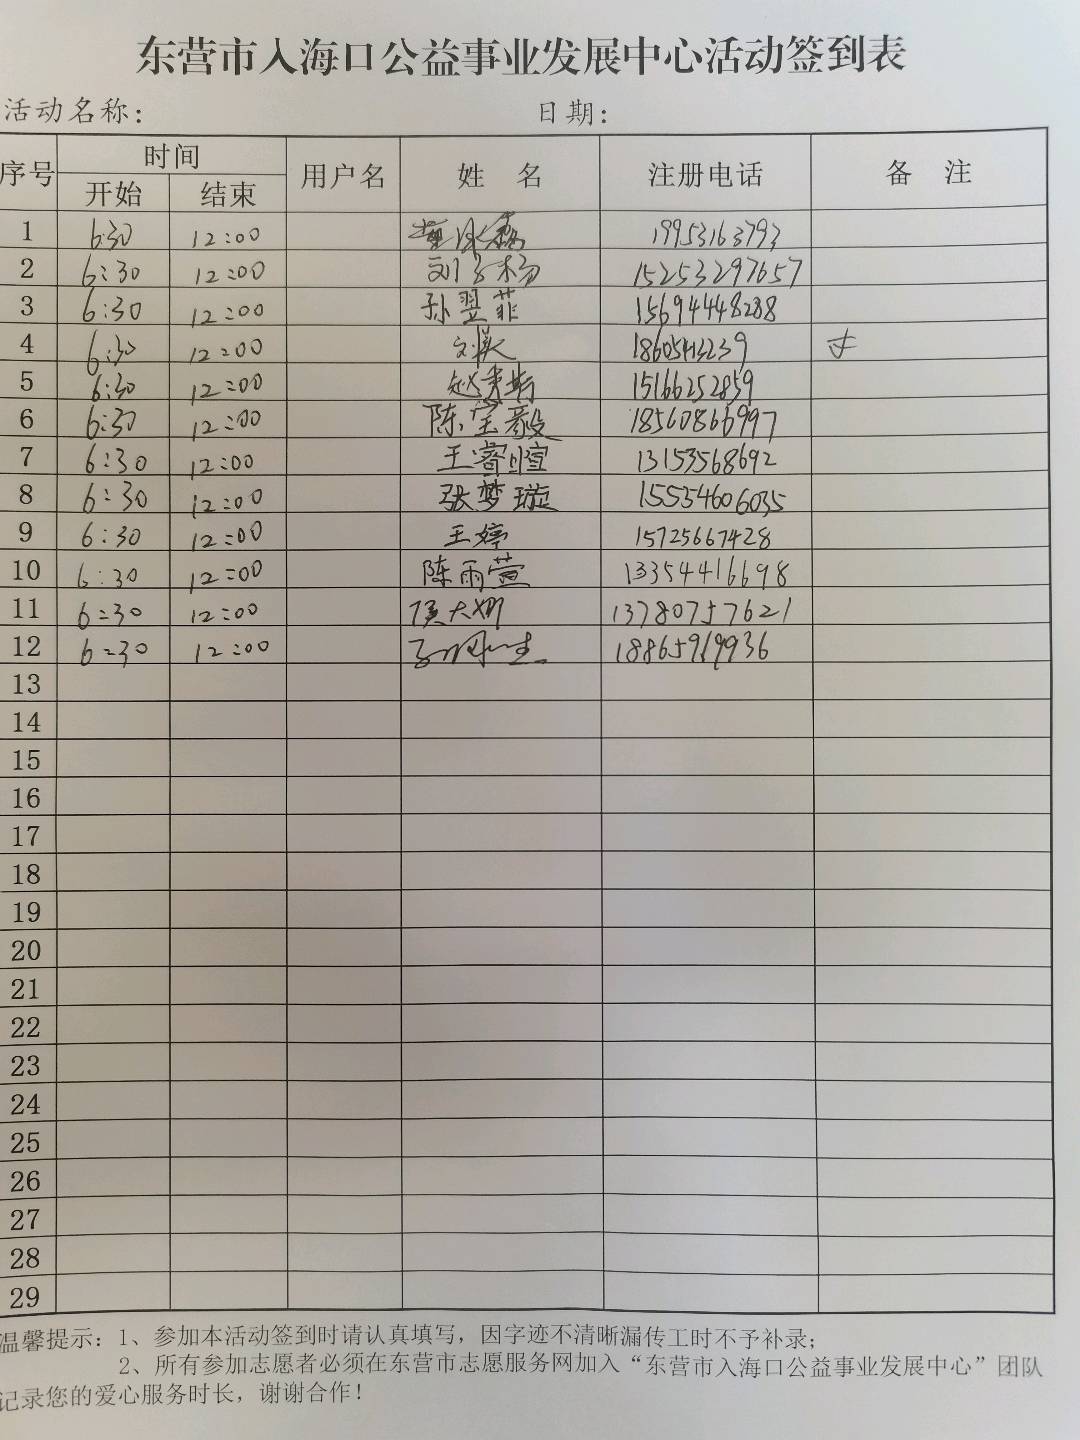 东营市入海口公益事业发展中心活动签到表
活动名称: 日期:
序号 时间 用户名 姓 名 注册电话 备 注
开始 结束
1 6:30 12:00 19953163793
2 6:30 12:00 刘子杨 15253297657
3 6:30 12:00 孙翌菲 15694448288
4 6:30 12:00
5 6:30 12:00 15166252859
6 6:30 12:00 陈宝毅 18560866997
7 6:30 12:00 王睿暄 13153568692
8 6:30 12:00 张梦璇 15554606035
9 6:30 12:00 王婷 15725667428
10 6:30 12:00 陈雨萱 13354416698
11 6:30 12:00 侯大娜 13780757621
12 6:30 12:00
13
14
15
16
17
18
19
20
21
22
23
24
25
26
27
28
29
温馨提示:1、参加本活动签到时请认真填写,因字迹不清晰漏传工时不予补录;
2、所有参加志愿者必须在东营市志愿服务网加入“东营市入海口公益事业发展中心”团队
记录您的爱心服务时长,谢谢合作!